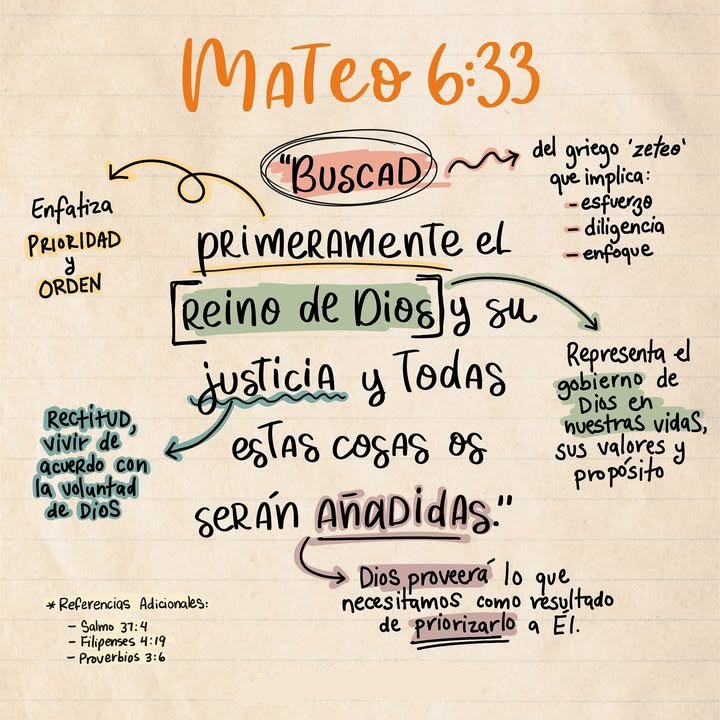 Mateo 6:33
"Buscad
del griego 'zeteo'
que implica:
- esfuerzo
- diligencia
- enfoque
Enfatiza
PRIORIDAD
y
ORDEN
primeramente el
Reino de Dios y su
justicia y todas
estas cosas os
serán añadidas."
Representa el
gobierno de
Dios en
nuestras vidas,
sus valores y
propósito
Rectitud,
vivir de
acuerdo con
la voluntad
de Dios
Dios proveerá lo que
necesitamos como resultado
de priorizarlo a Él.
* Referencias Adicionales:
- Salmo 37:4
- Filipenses 4:19
- Proverbios 3:6